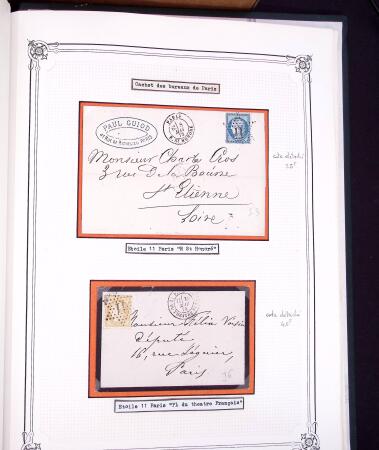 Cachet des bureaux de Paris
PAUL GUIOD
PARIS
R. ST HONORÉ
Monsieur Charles Cros
3 rue de la Bourse
St Etienne
Loire
cote détaché
Etoile 11 Paris "R St Honoré"
Monsieur Félix Voisin
Député
16, rue Séguier,
Paris
cote détaché
Etoile 11 Paris "Pl du theatre Français"